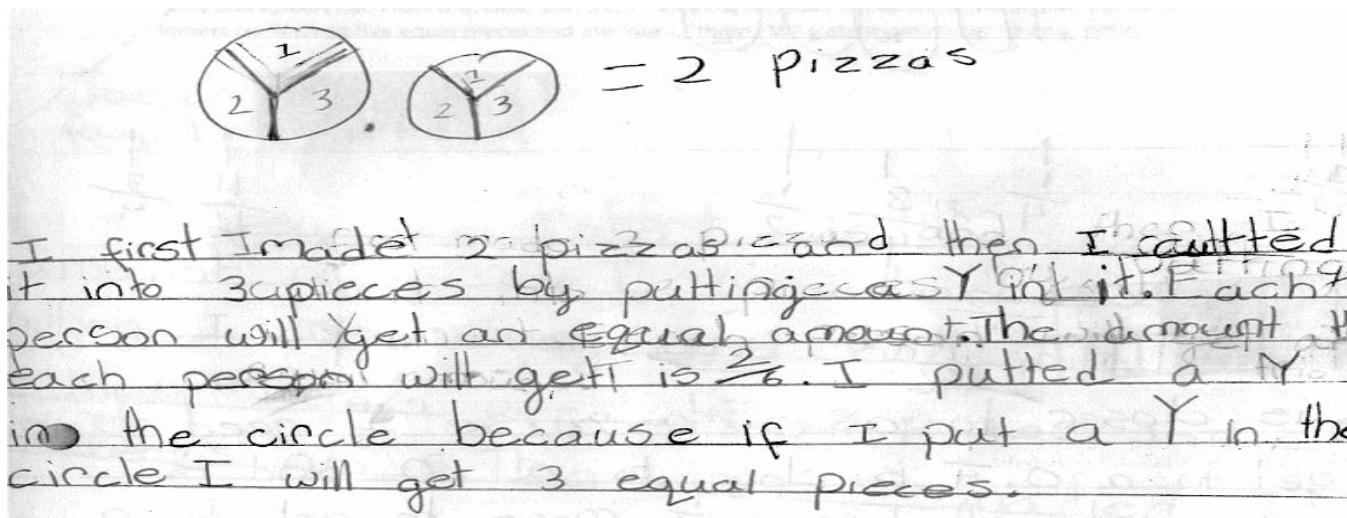 1 1
2 3 2 3 = 2 pizzas
I first made 2 pizzas and then I cutted
it into 3 pieces by putting a Y in it. Each
person will get an equal amount. The amount
each person will get is 2/6. I putted a Y
in the circle because if I put a Y in the
circle I will get 3 equal pieces.